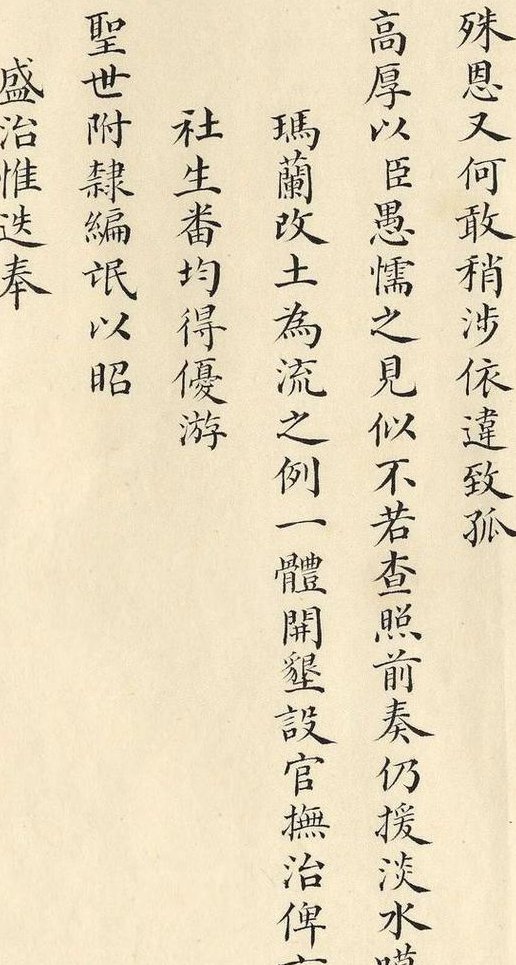 殊恩又何敢稍涉依違致孤
高厚以臣愚懦之見似不若查照前奏仍援淡水
瑪蘭改土為流之例一體開墾設官撫治俾
社生番均得優游
聖世附隸編氓以昭
盛治惟迭奉